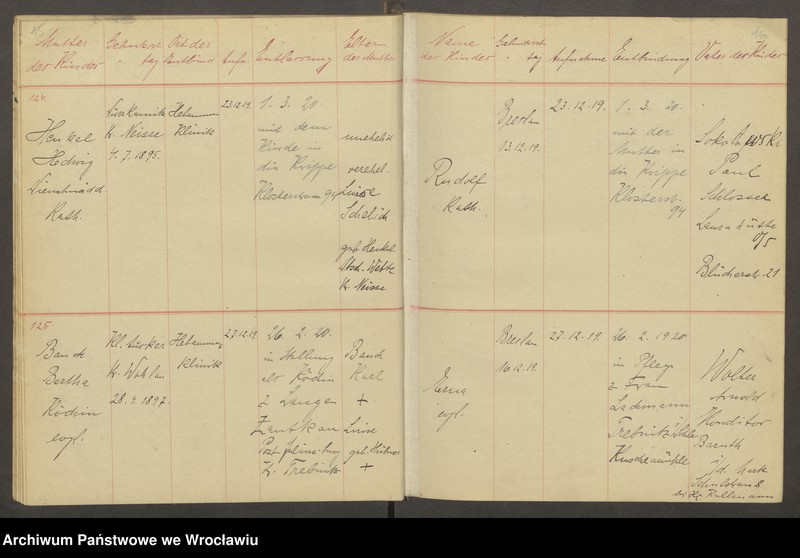 Mutter
der Kinder
Geburts
" tag
Ort der
Entbind
Aufn.
Entlassung
Eltern
der Mutter
124.
Henkel
Hedwig
Dienstmädch
Kath.
Kr. Neisse
4. 7. 1895.
Hebammen
Klinik
23.12.19.
1. 3. 20.
mit dem
Kinde in
die Krippe
Klosterstr. 94
unehelich
verehel.
Luise
geb. Henkel
Kr. Neisse
125.
Bank
Bertha
Köchin
evgl.
Kr. Wohlau
28. 1. 1897.
Hebammen
Klinik
27.12.19
26. 2. 20.
in Stellung
als Köchin
z. Langer
Kr. Trebnitz
Bank
Karl
+
Luise
geb. Hübner
+
16
Name
der Kinder
Geburts
" tag
Aufnahme
Entbindung
Vater der Kinder
Rudolf
Kath.
Breslau
13.12.19.
23.12.19.
1. 3. 20.
mit der
Mutter in
die Krippe
Klosterstr.
94
Sokolowski
Paul
Schlosser
Laurahütte
O/S
Blücherstr. 21
Erna
evgl.
Breslau
16.12.19.
27.12.19.
26. 2. 1920
in Pflege
z. Frau
Lachmann
Trebnitz i/Schles
Kuschemühle
Wolter
Arnold
Konditor
Baruth
i/d. Mark
Schulstrasse 8
bei Hr. Kullmann
Archiwum Państwowe we Wrocławiu